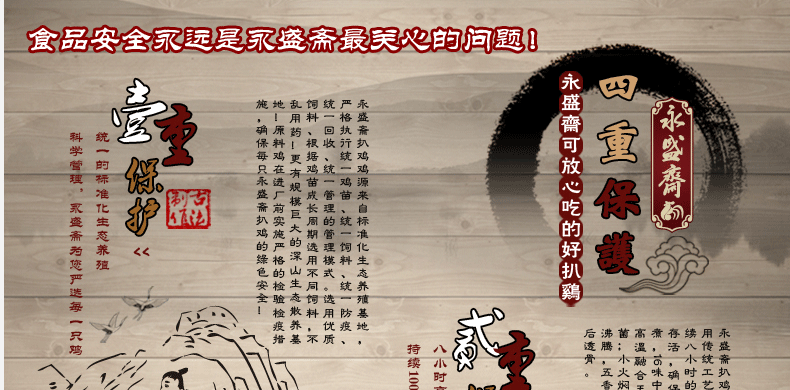 食品安全永远是永盛斋最关心的问题!
永盛齋
四重保護
永盛齋可放心吃的好扒鷄
壹重保护
古法制作
<<
统一的标准化生态养殖
科学管理,永盛斋为您严选每一只鸡
永盛斋扒鸡鸡源来自标准化生态养殖基地,
严格执行统一鸡苗、统一饲料、统一防疫、
统一回收、统一管理的管理模式。选用优质
饲料、根据鸡苗成长周期选用不同饲料,不
乱用药!更有规模巨大的深山生态散养基
地!原料鸡在进厂前实施严格的检验检疫措
施,确保每只永盛斋扒鸡的绿色安全!
贰重
八小时
持续100
永盛斋扒鸡
用传统工艺
续八小时的
存活,确保
煮,16味中
高温融合
菌;小火焖
沸腾,五香
后透骨。